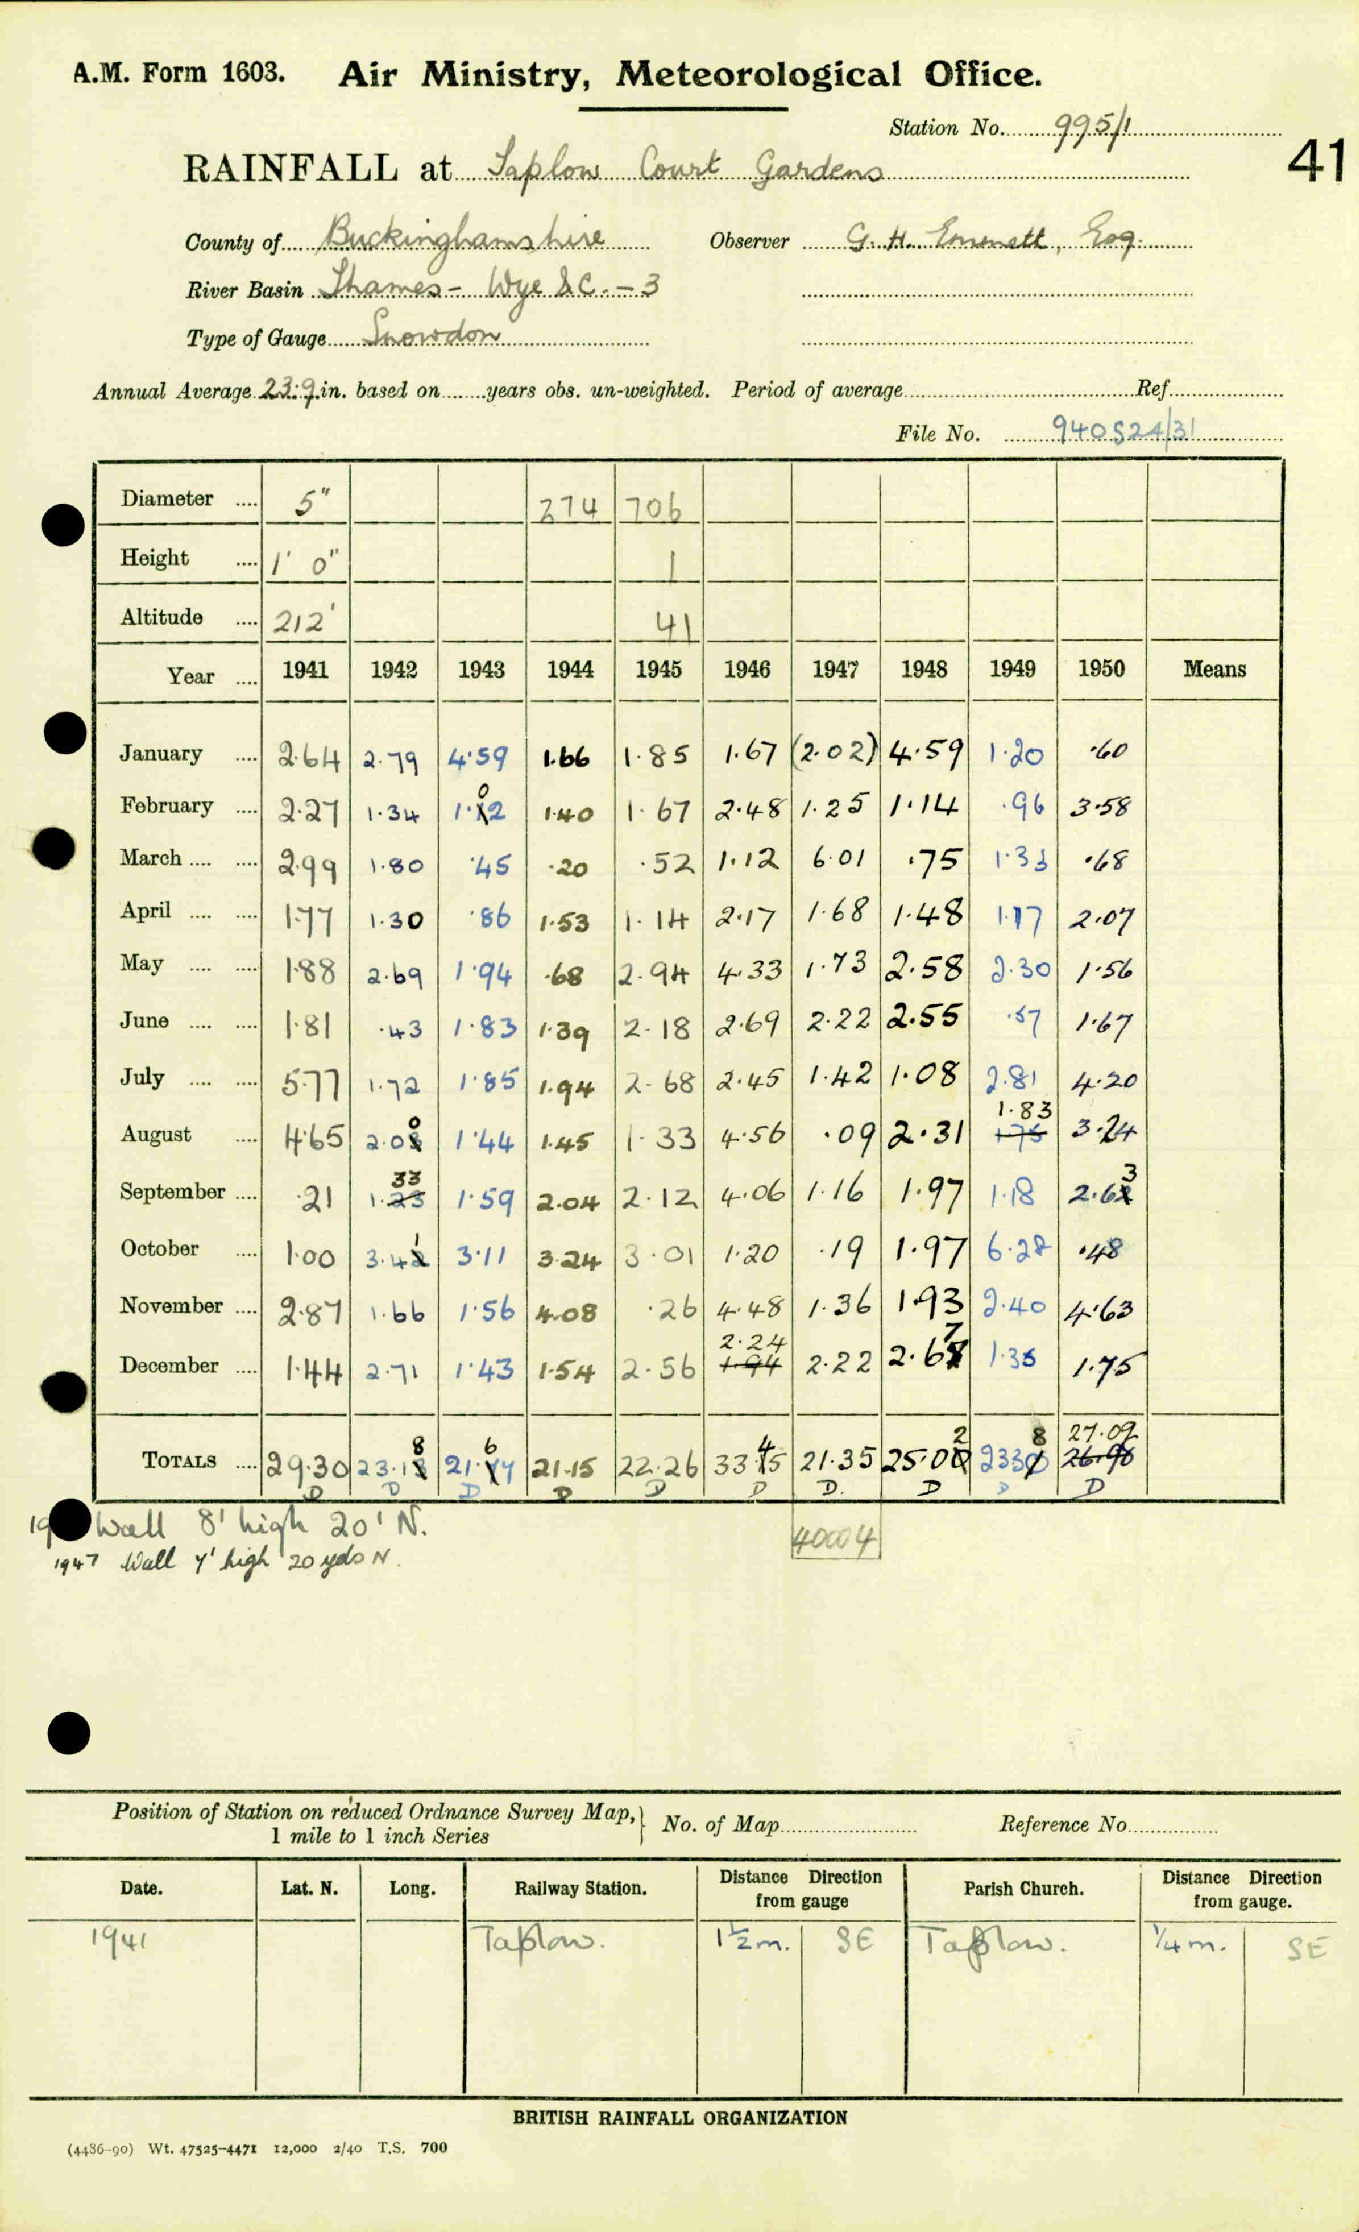 A.M. Form 1603. Air Ministry, Meteorological Office.
Station No. 995/1
41
RAINFALL at Taplow Court Gardens
County of Buckinghamshire Observer G. H. Emmett, Esq.
River Basin Thames - Wye &c. - 3
Type of Gauge Snowdon
Annual Average 23.9 in. based on years obs. un-weighted. Period of average Ref.
File No. 940524/31
Diameter 5" 274 706
Height 1' 0" 1
Altitude 212' 41
Year 1941 1942 1943 1944 1945 1946 1947 1948 1949 1950 Means
January 2.64 2.79 4.59 1.66 1.85 1.67 (2.02) 4.59 1.20 .60
February 2.27 1.34 1.02 1.40 1.67 2.48 1.25 1.14 .96 3.58
March 2.99 1.80 .45 .20 .52 1.12 6.01 .75 1.33 .68
April 1.77 1.30 .86 1.53 1.14 2.17 1.68 1.48 1.17 2.07
May 1.88 2.69 1.94 .68 2.94 4.33 1.73 2.58 2.30 1.56
June 1.81 .43 1.83 1.39 2.18 2.69 2.22 2.55 .57 1.67
July 5.77 1.72 1.85 1.94 2.68 2.45 1.42 1.08 2.81 4.20
August 4.65 2.00 1.44 1.45 1.33 4.56 .09 2.31 1.83 1.75 3.24
September .21 33 1.23 1.59 2.04 2.12 4.06 1.16 1.97 1.18 2.63
October 1.00 3.41 3.11 3.24 3.01 1.20 .19 1.97 6.28 .48
November 2.87 1.66 1.56 4.08 .26 4.48 1.36 1.93 2.40 4.63
December 1.44 2.71 1.43 1.54 2.56 2.24 1.94 2.22 2.67 1.35 1.75
TOTALS 29.30 23.18 21.67 21.15 22.26 33.45 21.35 25.02 23.38 27.09 26.98
D D D D D D D. D D D
Wall 8' high 20' N.
40004
1947 Wall 7' high 20 yds N.
Position of Station on reduced Ordnance Survey Map, 1 mile to 1 inch Series } No. of Map Reference No.
Date. Lat. N. Long. Railway Station. Distance Direction from gauge Parish Church. Distance Direction from gauge.
1941 Taplow. 1½ m. SE Taplow. ¼ m. SE
BRITISH RAINFALL ORGANIZATION
(4486-90) Wt. 47525-4471 12,000 2/40 T.S. 700